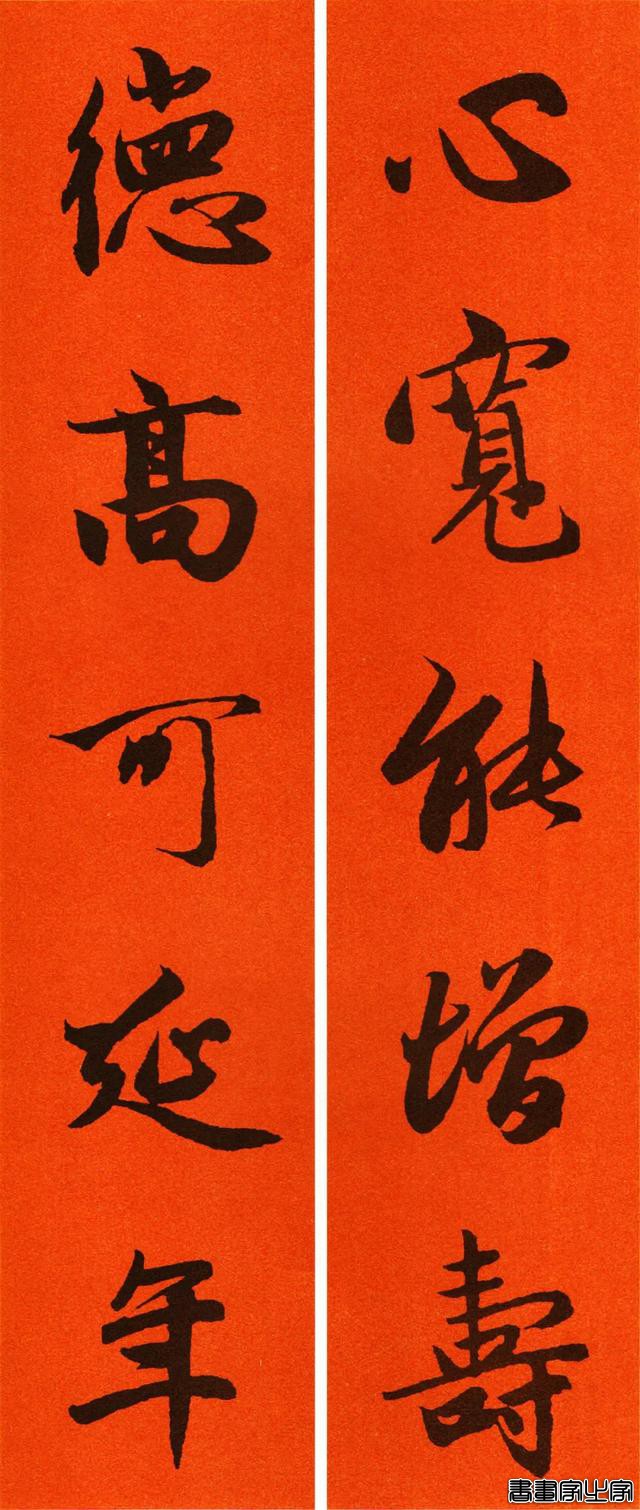 心寬能增壽
德高可延年
書畫家之家